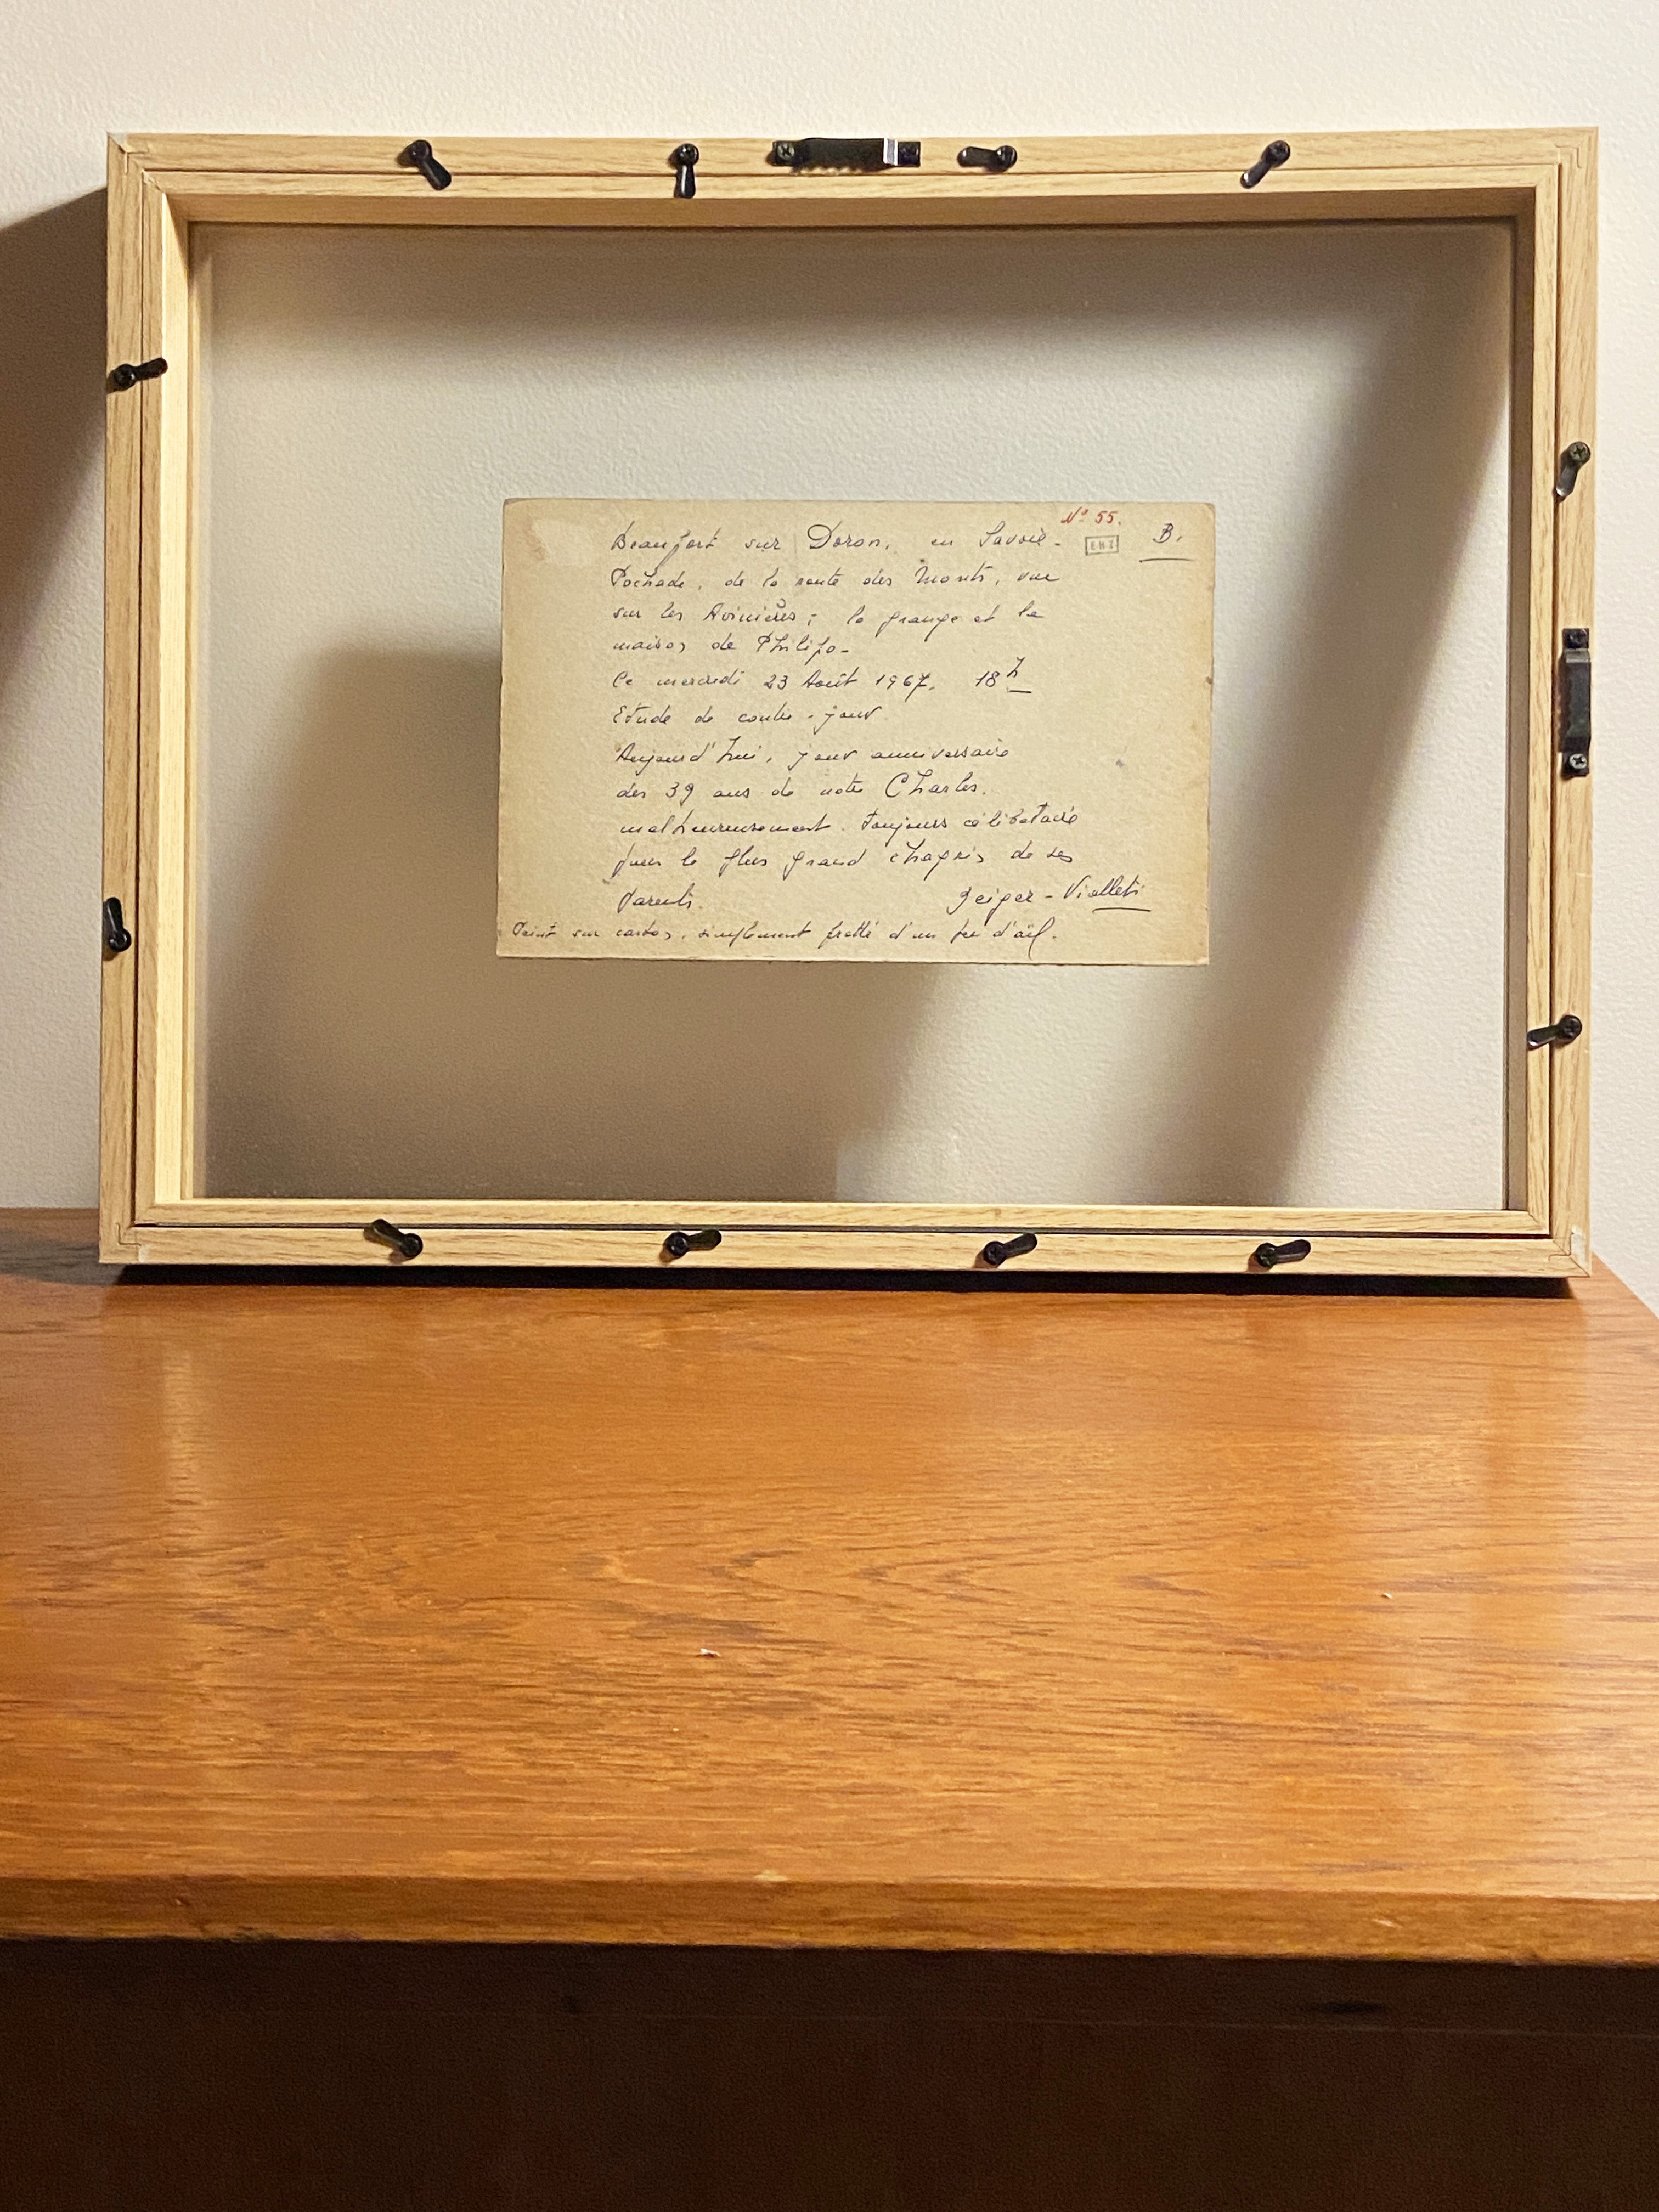 N° 55.
B.
Beaufort sur Doron, en Savoie-
Pochade, de la route des Monts, vue
sur les Avinières; la grange et la
maison de
Ce mercredi 23 Août 1967, 18h
Etude de contre-jour
Aujourd'hui, jour anniversaire
des 39 ans de notre Charles.
malheureusement toujours célibataire
pour le plus grand chagrin de ses
Parents.
Geiger-Viallet
Peint sur carton, simplement frotté d'un peu d'ail.